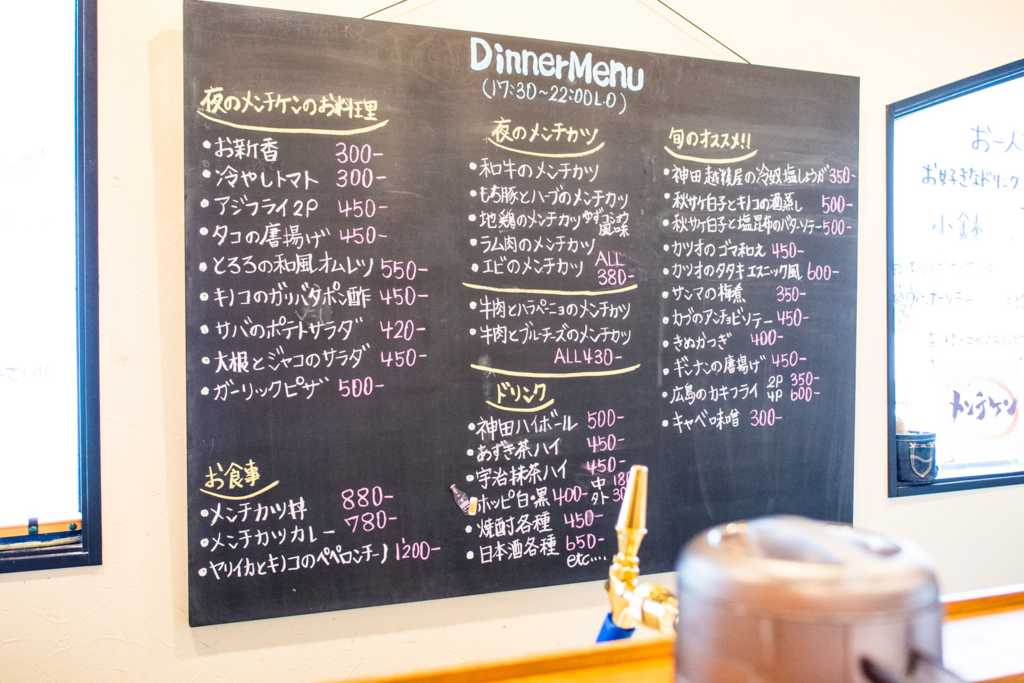 DinnerMenu
(17:30~22:00L.O)
夜のメンチケンのお料理
・お新香 300-
・冷やしトマト 300-
・アジフライ2P 450-
・タコの唐揚げ 450-
・とろろの和風オムレツ 550-
・キノコのガリバタポン酢 450-
・サバのポテトサラダ 420-
・大根とジャコのサラダ 450-
・ガーリックピザ 500-
お食事
・メンチカツ丼 880-
・メンチカツカレー 780-
・ヤリイカとキノコのペペロンチーノ 1200-
夜のメンチカツ
・和牛のメンチカツ
・もち豚とハーブのメンチカツ
・地鶏のメンチカツ ゆずコショウ風味
・ラム肉のメンチカツ
・エビのメンチカツ ALL 380-
・牛肉とハラペーニョのメンチカツ
・牛肉とブルーチーズのメンチカツ
ALL430-
ドリンク
・神田ハイボール 500-
・あずき茶ハイ 450-
・宇治抹茶ハイ 450-
・ホッピ白・黒 400- 中 外
・焼酎各種 450-
・日本酒各種 650-
etc....
旬のオススメ!!
・神田越後屋の冷奴塩しょうが 350-
・秋サケ白子とキノコの酒蒸し 500-
・秋サケ白子と塩昆布のバターソテー 500-
・カツオのゴマ和え 450-
・カツオのタタキエスニック風 600-
・サンマの梅煮 350-
・カブのアンチョビソテー 450-
・きぬかつぎ 400-
・ギンナンの唐揚げ 450-
・広島のカキフライ 2P 350- 4P 600-
・キャベロ味噌 300-
お一人
お好きなドリンク
小鉢
メンチケン